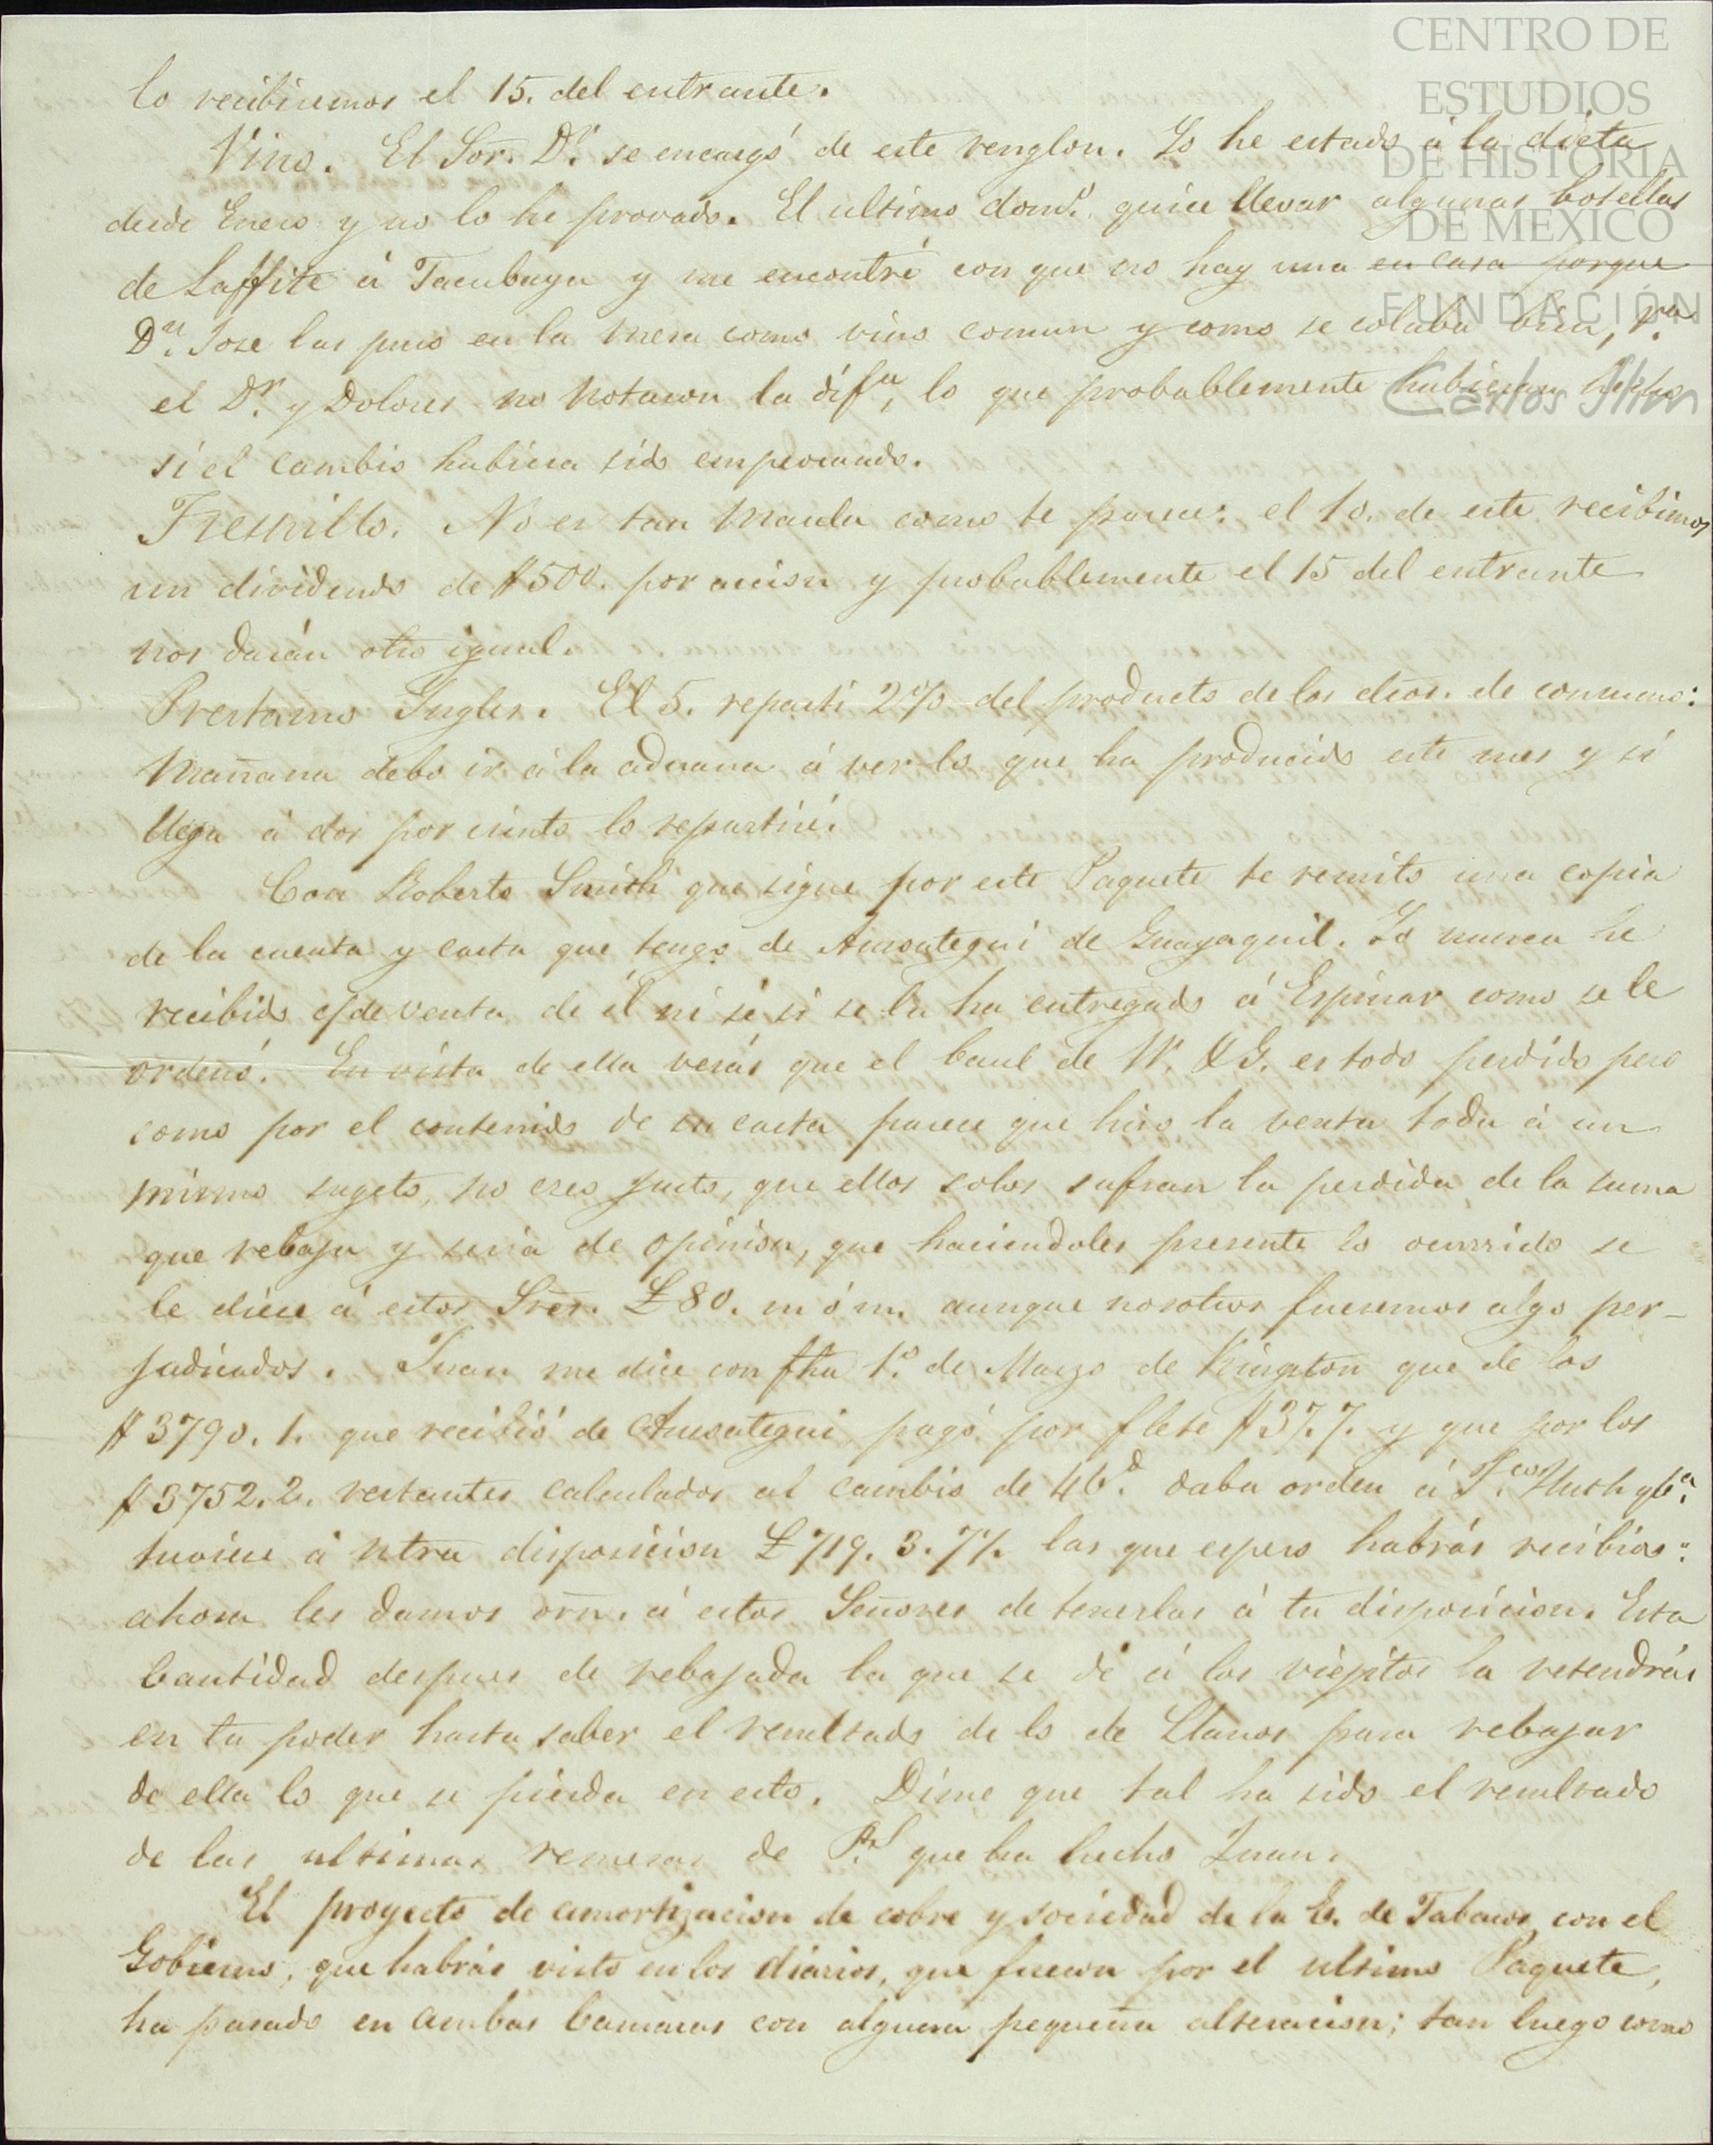 CENTRO DE
ESTUDIOS
DE HISTORIA
DE MEXICO
FUNDACIÓN
Carlos Slim
lo recibiremos el 15. del entrante.
Vino. El Sor. Dr. se encargó de este renglon. Yo he estado á la dieta
desde Enero y no lo he provado. El ultimo domo. quise llevar algunas botellas
de Laffite á Tacubaya y me encontré con que no hay una en casa porque
Dn. Jose las puso en la mesa como vino comun y como se colaba bien,
el Dr. y Dolores no notaron la difa, lo que probablemente hubieran hecho
si el cambio hubiera sido empeorando.
Fresnillo. No es tan maula como te parece: el 10. de este recibimos
un dividendo de $500. por accion y probablemente el 15 del entrante
nos darán otro igual.
Prestamo Ingles. El 5. repartí 2% del producto de los dros. de consumo:
Mañana debo ir á la aduana á ver lo que ha producido este mes y si
llega á dos por ciento lo repartiré.
Con Roberto Smith que sigue por este Paquete te remito una copia
de la cuenta y carta que tengo de Amsategui de Guayaquil. Yo nunca he
recibido c/de venta de él ni sé si se la ha entregado á Espinar como se le
ordenó. En vista de ella verás que el baul de W. & G. es todo perdido pero
como por el contenido de su carta parece que hizo la venta toda á un
mismo sugeto, no creo justo, que ellos solos sufran la perdida de la suma
que rebaja y seria de opinion, que haciendoles presente lo ocurrido se
le diese á estos Sres. £80. m ó m. aunque nosotros fuesemos algo per-
judicados. Juan me dice con fha 1o. de Marzo de Kingston que de los
$3790.1. que recibió de Amsategui pagó por flete $37.7. y que por los
$3752.2. restantes calculados al cambio de 46d. daba orden á Fco. Huth y Ca.
tuviese á ntra disposicion £719.3.7. las que espero habrás recibido:
ahora les damos orn. á estos Señores de tenerlas á tu disposicion. Esta
Cantidad despues de rebajada la que se dé á los viejitos la retendrás
en tu poder hasta saber el resultado de lo de Llanos para rebajar
de ella lo que se pierda en esto. Dime que tal ha sido el resultado
de las ultimas remesas de que ha hecho Juan.
El proyecto de amortizacion de cobre y sociedad de la E. de Tabacos con el
Gobierno, que habrás visto en los diarios, que fueron por el ultimo Paquete,
ha pasado en ambas Camaras con alguna pequeña alteracion; tan luego como